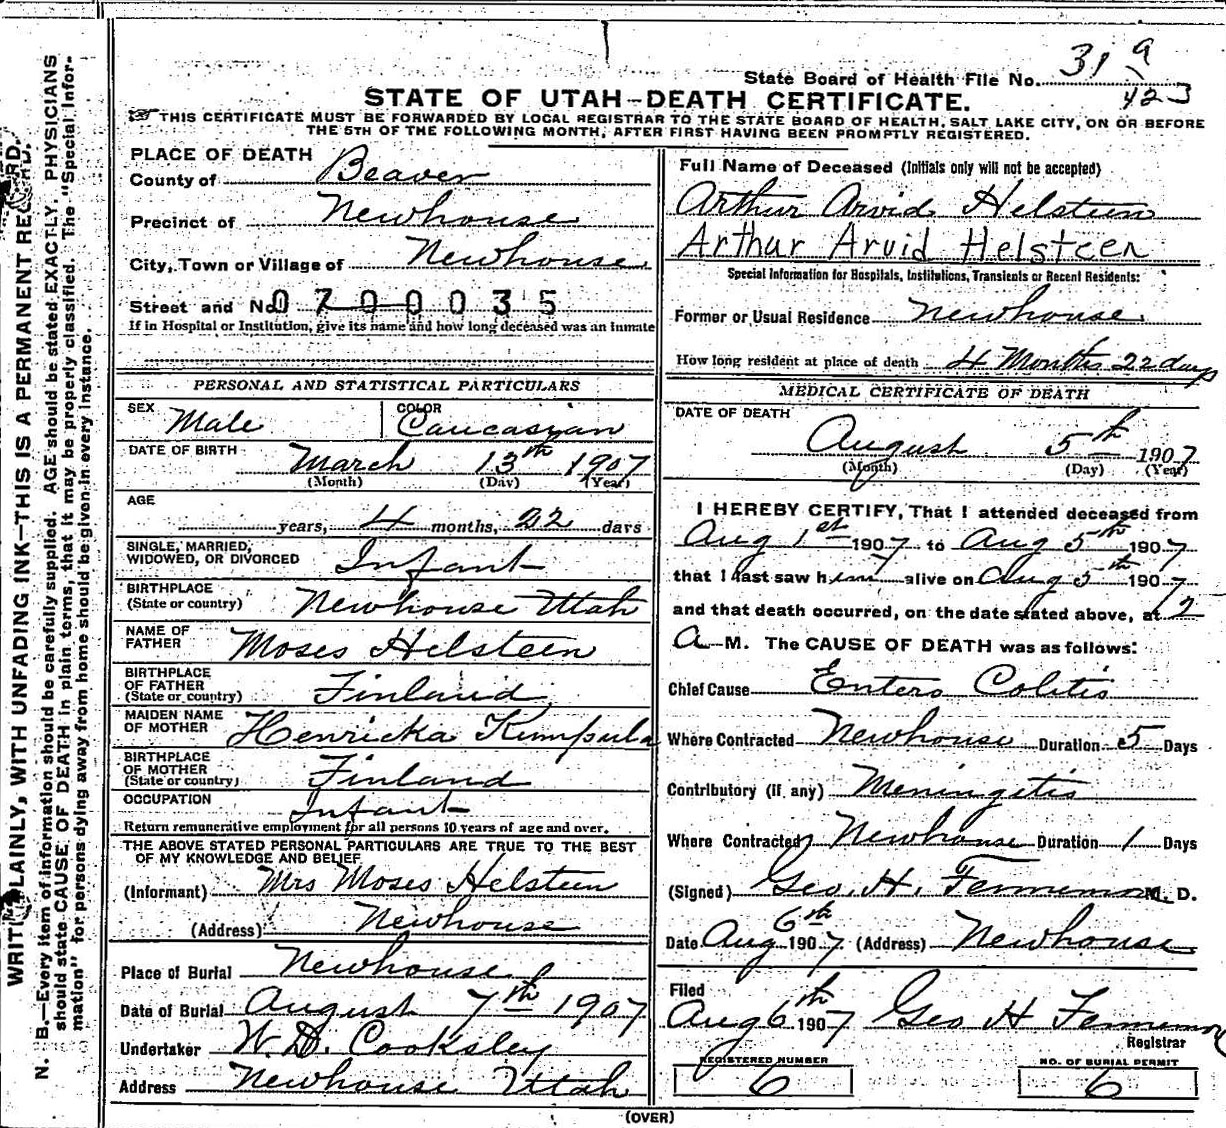 State Board of Health File No. 31 a
423
STATE OF UTAH—DEATH CERTIFICATE.
THIS CERTIFICATE MUST BE FORWARDED BY LOCAL REGISTRAR TO THE STATE BOARD OF HEALTH, SALT LAKE CITY, ON OR BEFORE
THE 5TH OF THE FOLLOWING MONTH, AFTER FIRST HAVING BEEN PROMPTLY REGISTERED.
PLACE OF DEATH
County of Beaver
Precinct of Newhouse
City, Town or Village of Newhouse
Street and No. 0700035
If in Hospital or Institution, give its name and how long deceased was an inmate
PERSONAL AND STATISTICAL PARTICULARS
SEX Male COLOR Caucasian
DATE OF BIRTH March 13th 1907
(Month) (Day) (Year)
AGE
years, 4 months, 22 days
SINGLE, MARRIED,
WIDOWED, OR DIVORCED Infant
BIRTHPLACE
(State or country) Newhouse Utah
NAME OF
FATHER Moses Helsteen
BIRTHPLACE
OF FATHER
(State or country) Finland
MAIDEN NAME
OF MOTHER Henricka Kumpula
BIRTHPLACE
OF MOTHER
(State or country) Finland
OCCUPATION Infant
Return remunerative employment for all persons 10 years of age and over.
THE ABOVE STATED PERSONAL PARTICULARS ARE TRUE TO THE BEST
OF MY KNOWLEDGE AND BELIEF
(Informant) Mrs Moses Helsteen
(Address) Newhouse
Place of Burial Newhouse
Date of Burial August 7th 1907
Undertaker W. D. Cooksley
Address Newhouse Utah
Full Name of Deceased (Initials only will not be accepted)
Arthur Arvid Helsteen
Arthur Arvid Helsteen
Special Information for Hospitals, Institutions, Transients or Recent Residents:
Former or Usual Residence Newhouse.
How long resident at place of death 4 Months 22 days
MEDICAL CERTIFICATE OF DEATH
DATE OF DEATH
August 5th 1907
(Month) (Day) (Year)
I HEREBY CERTIFY, That I attended deceased from
Aug 1st 1907 to Aug 5th 1907
that I last saw him alive on Aug 5th 1907
and that death occurred, on the date stated above, at 12
A M. The CAUSE OF DEATH was as follows:
Chief Cause Entero Colitis
Where Contracted Newhouse Duration 5 Days
Contributory (if any) Meningitis
Where Contracted Newhouse Duration 1 Days
(Signed) Geo. H. M. D.
Date Aug 6th 1907 (Address) Newhouse
Filed
Aug 6th 1907 Geo H
Registrar
REGISTERED NUMBER
6
NO. OF BURIAL PERMIT
6
(OVER)
WRITE PLAINLY, WITH UNFADING INK—THIS IS A PERMANENT RECORD.
N. B.—Every item of information should be carefully supplied. AGE should be stated EXACTLY. PHYSICIANS
should state CAUSE OF DEATH in plain terms, that it may be properly classified. The "Special Infor-
mation" for persons dying away from home should be given in every instance.